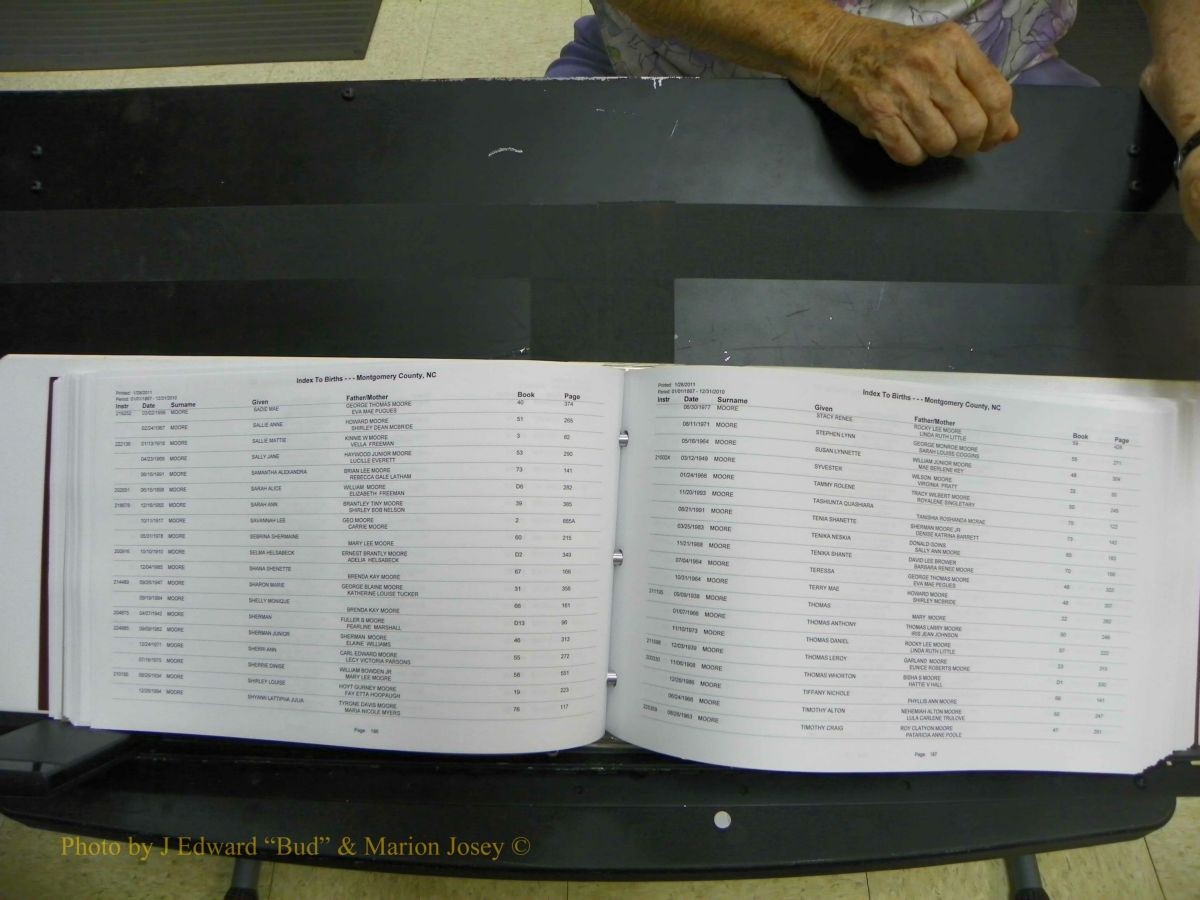 Index To Births - - - Montgomery County, NC
Printed: 1/28/2011
Period: 01/01/1867 - 12/31/2010
Instr Date Surname Given Father/Mother Book Page
MOORE SADIE MAE GEORGE THOMAS MOORE 40 374
EVA MAE PUGUES
MOORE SALLIE ANNE HOWARD MOORE 51 265
SHIRLEY DEAN MCBRIDE
MOORE SALLIE MATTIE KINNIE W MOORE 3 82
VELLA FREEMAN
MOORE SALLY JANE HAYWOOD JUNIOR MOORE 53 290
LUCILLE EVERETT
MOORE SAMANTHA ALEXANDRA BRIAN LEE MOORE 73 141
REBECCA GALE LATHAM
MOORE SARAH ALICE WILLIAM MOORE D6 282
ELIZABETH FREEMAN
MOORE SARAH ANN BRANTLEY TINY MOORE 39 385
SHIRLEY BOB NELSON
10/11/1917 MOORE SAVANNAH LEE GEO MOORE 2 665A
CARRIE MOORE
MOORE SEBRINA SHERMAINE 60 215
MARY LEE MOORE
10/10/1910 MOORE SELMA HELSABECK ERNEST BRANTLY MOORE D2 343
ADELIA HELSABECK
MOORE SHANA SHENETTE 67 166
BRENDA KAY MOORE
MOORE SHARON MARIE GEORGE BLAINE MOORE 31 356
KATHERINE LOUISE TUCKER
MOORE SHELLY MONIQUE 66 161
BRENDA KAY MOORE
04/27/1942 MOORE SHERMAN FULLER B MOORE D13 96
PEARLINE MARSHALL
MOORE SHERMAN JUNIOR SHERMAN MOORE 46 313
ELAINE WILLIAMS
12/24/1971 MOORE SHERRI ANN CARL EDWARD MOORE 55 272
LECY VICTORIA PARSONS
MOORE SHERRIE DINISE WILLIAM BOWDEN JR 58 551
MARY LEE MOORE
MOORE SHIRLEY LOUISE HOYT GURNEY MOORE 19 223
FAY ETTA HOOPAUGH
MOORE SHYANN LATTIPHA JULIA TYRONE DAVIS MOORE 76 117
MARIA NICOLE MYERS
Page 186
Printed: 1/28/2011
Period: 01/01/1867 - 12/31/2010
Index To Births - - - Montgomery County, NC
Instr Date Surname Given Father/Mother Book Page
06/30/1977 MOORE STACY RENEE ROCKY LEE MOORE 59
LINDA RUTH LITTLE
08/11/1971 MOORE STEPHEN LYNN GEORGE MONROE MOORE 55 271
SARAH LOUISE COGGINS
05/16/1964 MOORE SUSAN LYNNETTE WILLIAM JUNIOR MOORE 48
MAE BERLENE KEY
03/12/1949 MOORE SYVESTER WILSON MOORE
VIRGINIA PRATT
01/24/1966 MOORE TAMMY ROLENE TRACY WILBERT MOORE 50
ROYALENE SINGLETARY
11/20/1993 MOORE TASHUNTA QUASHARA
TANISHIA ROSHANDA MCRAE
08/21/1991 MOORE TENIA SHANETTE SHERMAN MOORE JR 73
DENISE KATRINA BARRETT
03/25/1983 MOORE TENIKA NESKIA DONALD GOINS
SALLY ANN MOORE
11/21/1988 MOORE TENIKA SHANTE DAVID LEE BROWER 70
BARBARA RENEE MOORE
07/04/1964 MOORE TERESSA GEORGE THOMAS MOORE 48
EVA MAE PEGUES
10/31/1964 MOORE TERRY MAE HOWARD MOORE 48
SHIRLEY MCBRIDE
MOORE THOMAS
MARY MOORE
01/07/1966 MOORE THOMAS ANTHONY THOMAS LARRY MOORE 50
IRIS JEAN JOHNSON
11/10/1973 MOORE THOMAS DANIEL ROCKY LEE MOORE 57
LINDA RUTH LITTLE
12/03/1939 MOORE THOMAS LEROY GARLAND MOORE
EUNICE ROBERTS MOORE
11/06/1908 MOORE THOMAS WHORTON BISHA S MOORE D1
HATTIE V HALL
12/26/1986 MOORE TIFFANY NICHOLE
PHYLLIS ANN MOORE
MOORE TIMOTHY ALTON NEHEMIAH ALTON MOORE 247
LULA CARLENE TRULOVE
08/28/1963 MOORE TIMOTHY CRAIG ROY CLATYON MOORE 47
PATARICIA ANNE POOLE
Page 187
Photo by J Edward “Bud” & Marion Josey ©